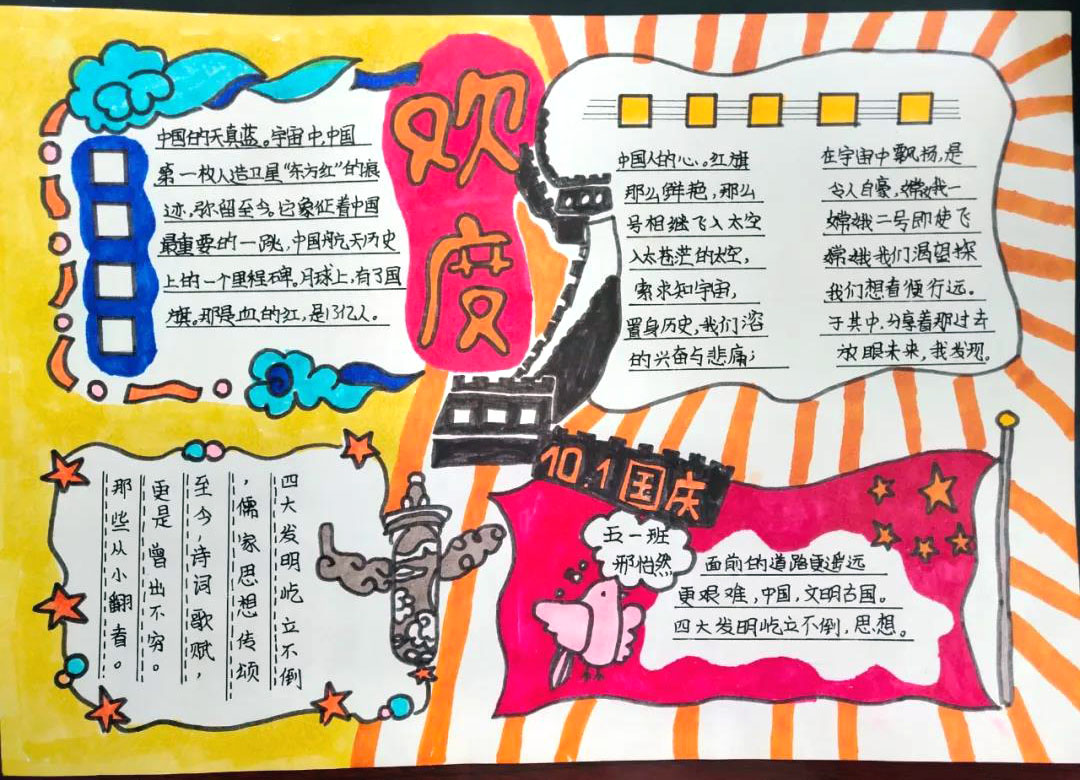 欢度
中国的天真蓝。宇宙中,中国
第一枚人造卫星“东方红”的展
迹,弥留至今。它象征着中国
最重要的一跳,中国航天历史
上的一个里程碑。月球上,有了国
旗。那是血的红,是13亿人。
中国人的心。红旗
那么鲜艳,那么
号相继飞入太空
入太苍茫的太空,
索求知宇宙,
置身历史,我们溶
的兴奋与悲痛;
在宇宙中飘扬,是
令人自豪,嫦娥一
嫦娥二号即使飞
嫦娥我们渴望探
我们想着便行远。
于其中,分享着那过去
放眼未来,我发现。
四大发明屹立不倒
,儒家思想传颂
至今,诗词歌赋,
更是曾出不穷。
那些从小翻着。
10.1国庆
五一班
邢怡然
面前的道路更遥远
更艰难,中国,文明古国。
四大发明屹立不倒,思想。